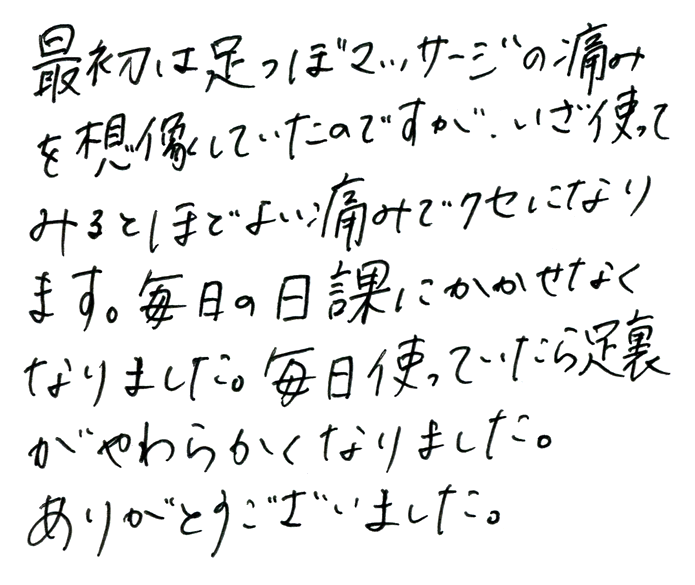 最初は足つぼマッサージの痛み
を想像していたのですが、いざ使って
みるとほどよい痛みでクセになり
ます。毎日の日課にかかせなく
なりました。毎日使っていたら足裏
がやわらかくなりました。
ありがとうございました。